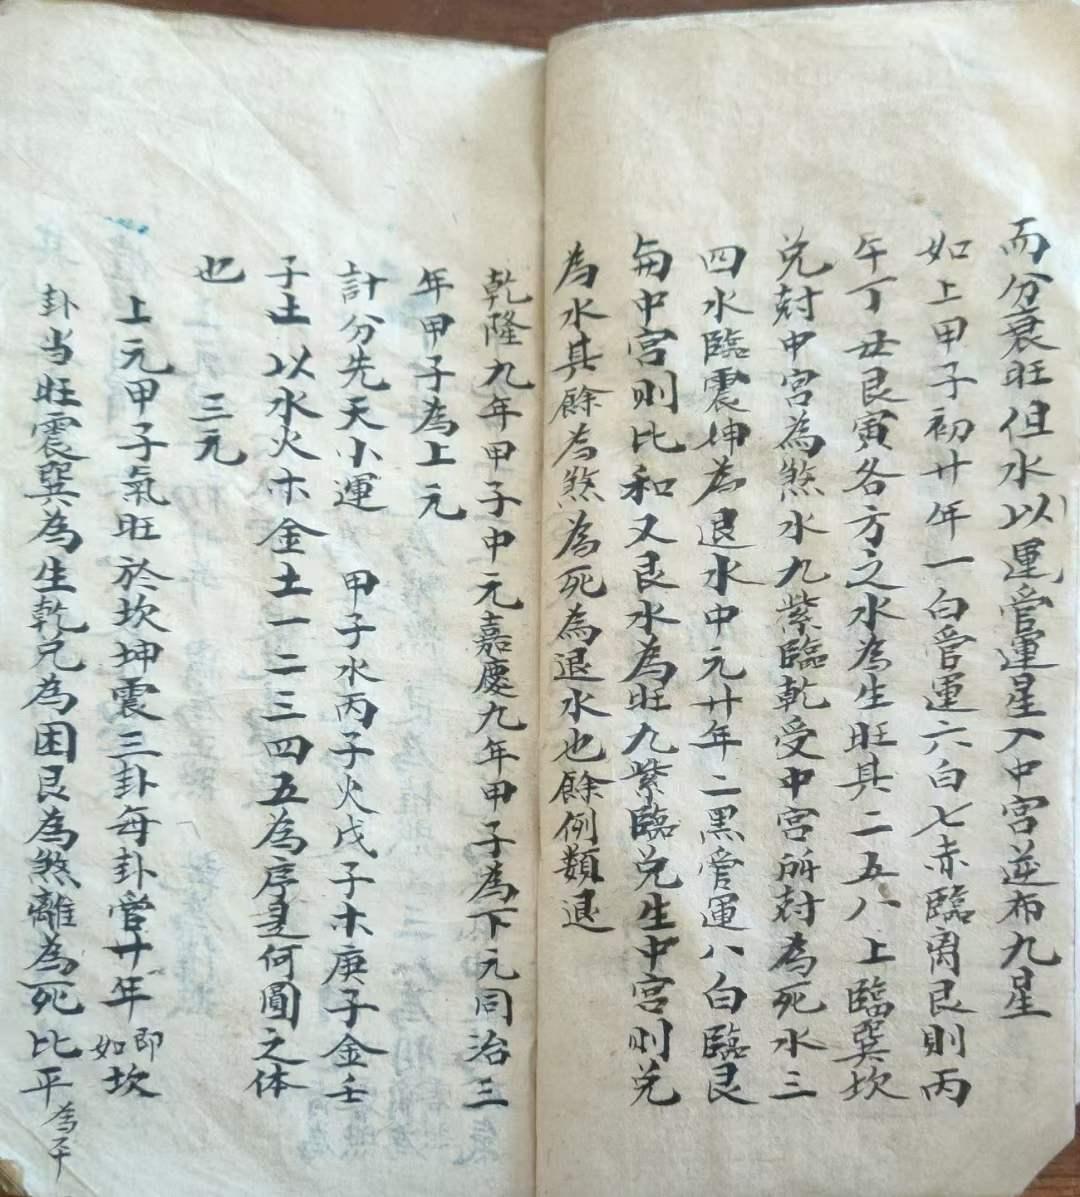 而分衰旺但水以運管運星入中宮逆布九星
如上甲子初廿年一白管運六白七赤臨离艮則丙
午丁丑艮寅各方之水為生旺其二五八上臨巽坎
兌尅中宮為煞水九紫臨乾受中宮所尅為死水三
四水臨震坤為退水中元廿年二黑管運八白臨艮
與中宮則比和又艮水為旺九紫臨兌生中宮則兌
為水其餘為煞為死為退水也餘例類退
乾隆九年甲子中元嘉慶九年甲子為下元同治三
年甲子為上元
計分先天小運 甲子水丙子火戊子木庚子金壬
子土 以水火木金土一二三四五為序是何圓之体
也 三元
上元甲子氣旺於坎坤震三卦每卦管廿年即如坎
卦当旺震巽為生乾兄為困艮為煞離為死比平為平